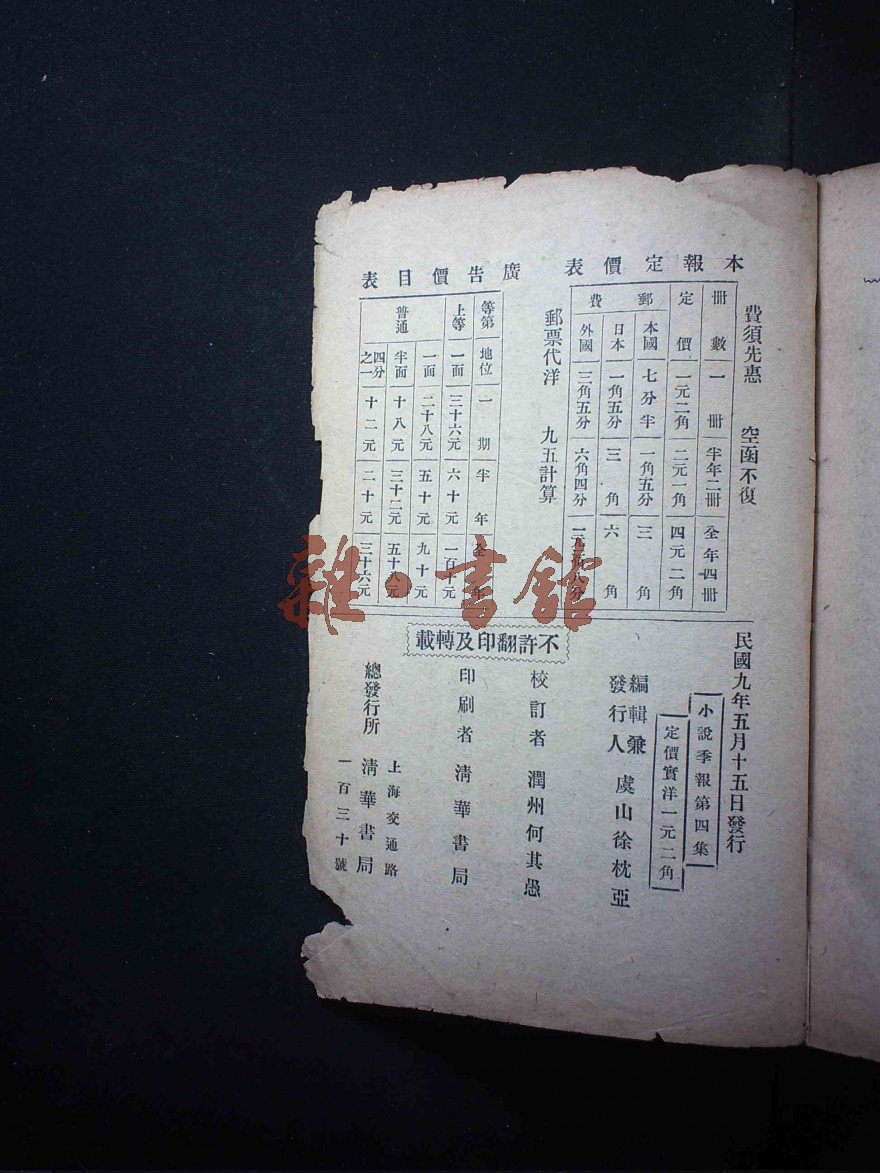 本報定價表
費須先惠　空函不復
冊數　一冊　半年二冊　全年四冊
定價　一元二角　二元一角　四元二角
郵費
本國　七分半　一角五分　三角
日本　一角五分　三角　六角
外國　三角五分　六角四分
郵票代洋　九五計算
廣告價目表
等第　地位　一期　半年　全年
上等　一面　三十六元　六十元　一百十元
普通
一面　二十八元　五十元　九十元
半面　十八元　三十二元　五十八元
四分之一　十二元　二十元　三十六元
民國九年五月十五日發行
小說季報第四集
定價實洋一元二角
編輯兼發行人　虞山徐枕亞
校訂者　潤州何其愚
印刷者　清華書局
總發行所　清華書局
上海交通路
一百三十號
不許翻印及轉載
雜·書館